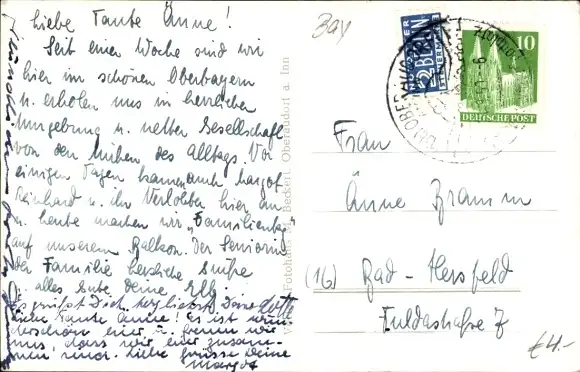 Liebe Tante Änne!
Seit einer Woche sind wir
hier im schönen Oberbayern
u. erholen uns in herrlicher
Umgebung u. netter Gesellschaft
von den Mühen des Alltags. Vor
einigen Tagen kamen auch Margot
Reinhard u. ihr Verlobter hier an
u. heute machen wir „Familientag"
auf unserem Balkon. Der Seniorin
der Familie herzliche Grüße
u. alles Gute Deine Elli.
Es grüßt Dich herzlichst Deine Lotte
Liebe Tante Änne! Es ist wun-
derschön hier u. freuen wir
uns, dass wir hier zusam-
men sind. Liebe Grüsse Deine
Margot
Fotohaus Beckert, Oberaudorf a. Inn
Bay
NOTOPFER
2 BERLIN
STEUERMARKE
10
DEUTSCHE POST
Frau
Änne Bramm
(16) Bad-Hersfeld
Fuldastraße 7
€4.-